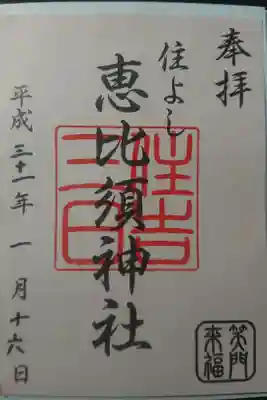 奉拝
住よし
恵比須神社
平成三十一年一月十六日
笑門
来福